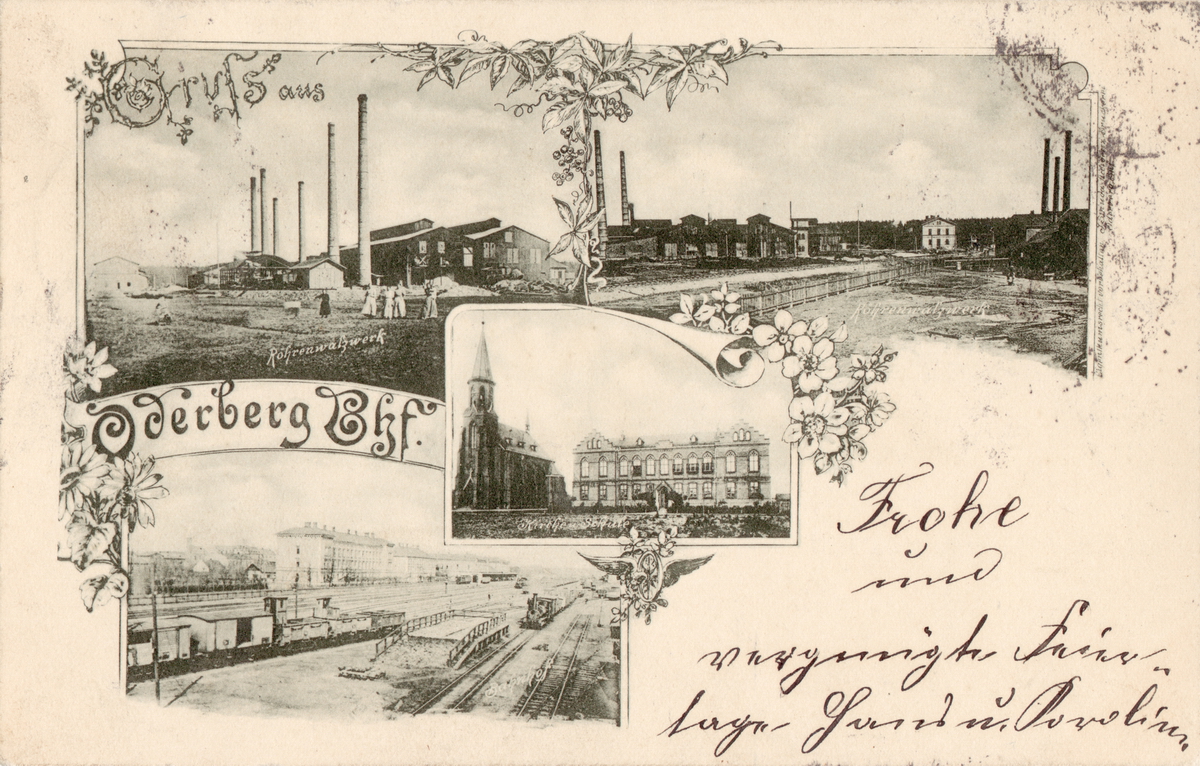 Gruss aus
Röhrenwalzwerk
Röhrenwalzwerk
Oderberg Bhf.
Kirche Schule
Frohe
und
vergnügte Feier-
tage Hans u. Karolin